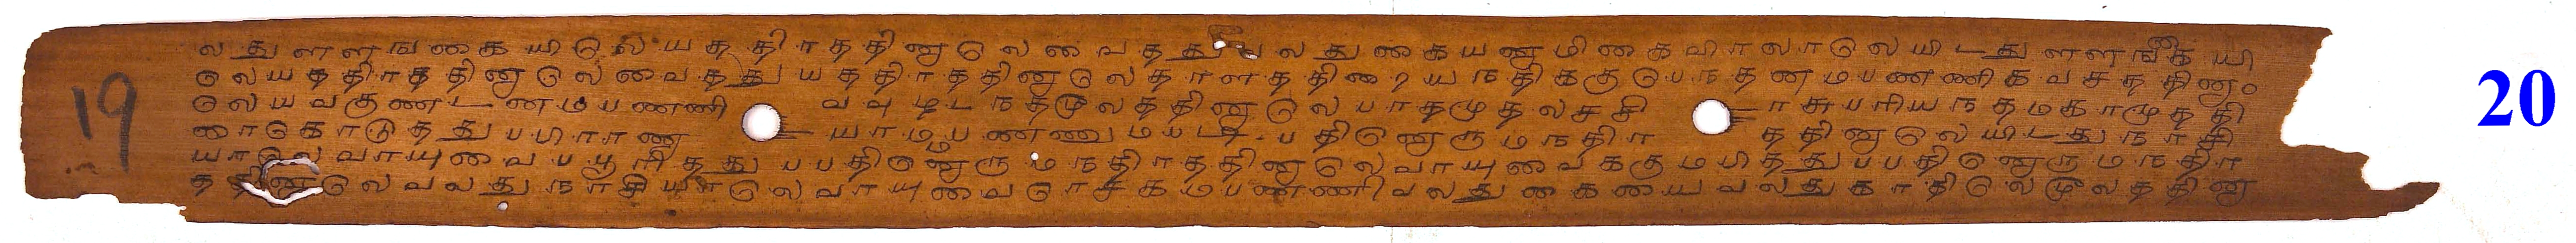 லதுளளஙகையிலெயநதிரததினாலெவைதது வலதுகையனாமிகைவிரலாலெயிடதுளளஙகையி
லெயநதிரததினாலெவைததுயநதிரததினாலெதாளததிரையநதிககுபெநதனமபணணிகவசததினா
லெயவகுணடனமபணணி வவுமடநதமூலததினாலெபாதமுதலசசி ரசுபரியநதமகாமுததி
ரைகொடுததுபபிராண யாமமபணணுமபடி. பதினொருமநதிர ததினாலெயிடதுநாசி
யாலெவாயுவைபபூரிததுபபதினொருமநதிரததினாலெவாயுவைககுமபிததுபபதினொருமநதிர
ததினாலெவலதுநாசியாலெவாயுவைரெசகமபணணிவலதுகையைவலதுகாதிலெமூலததினா
19
20